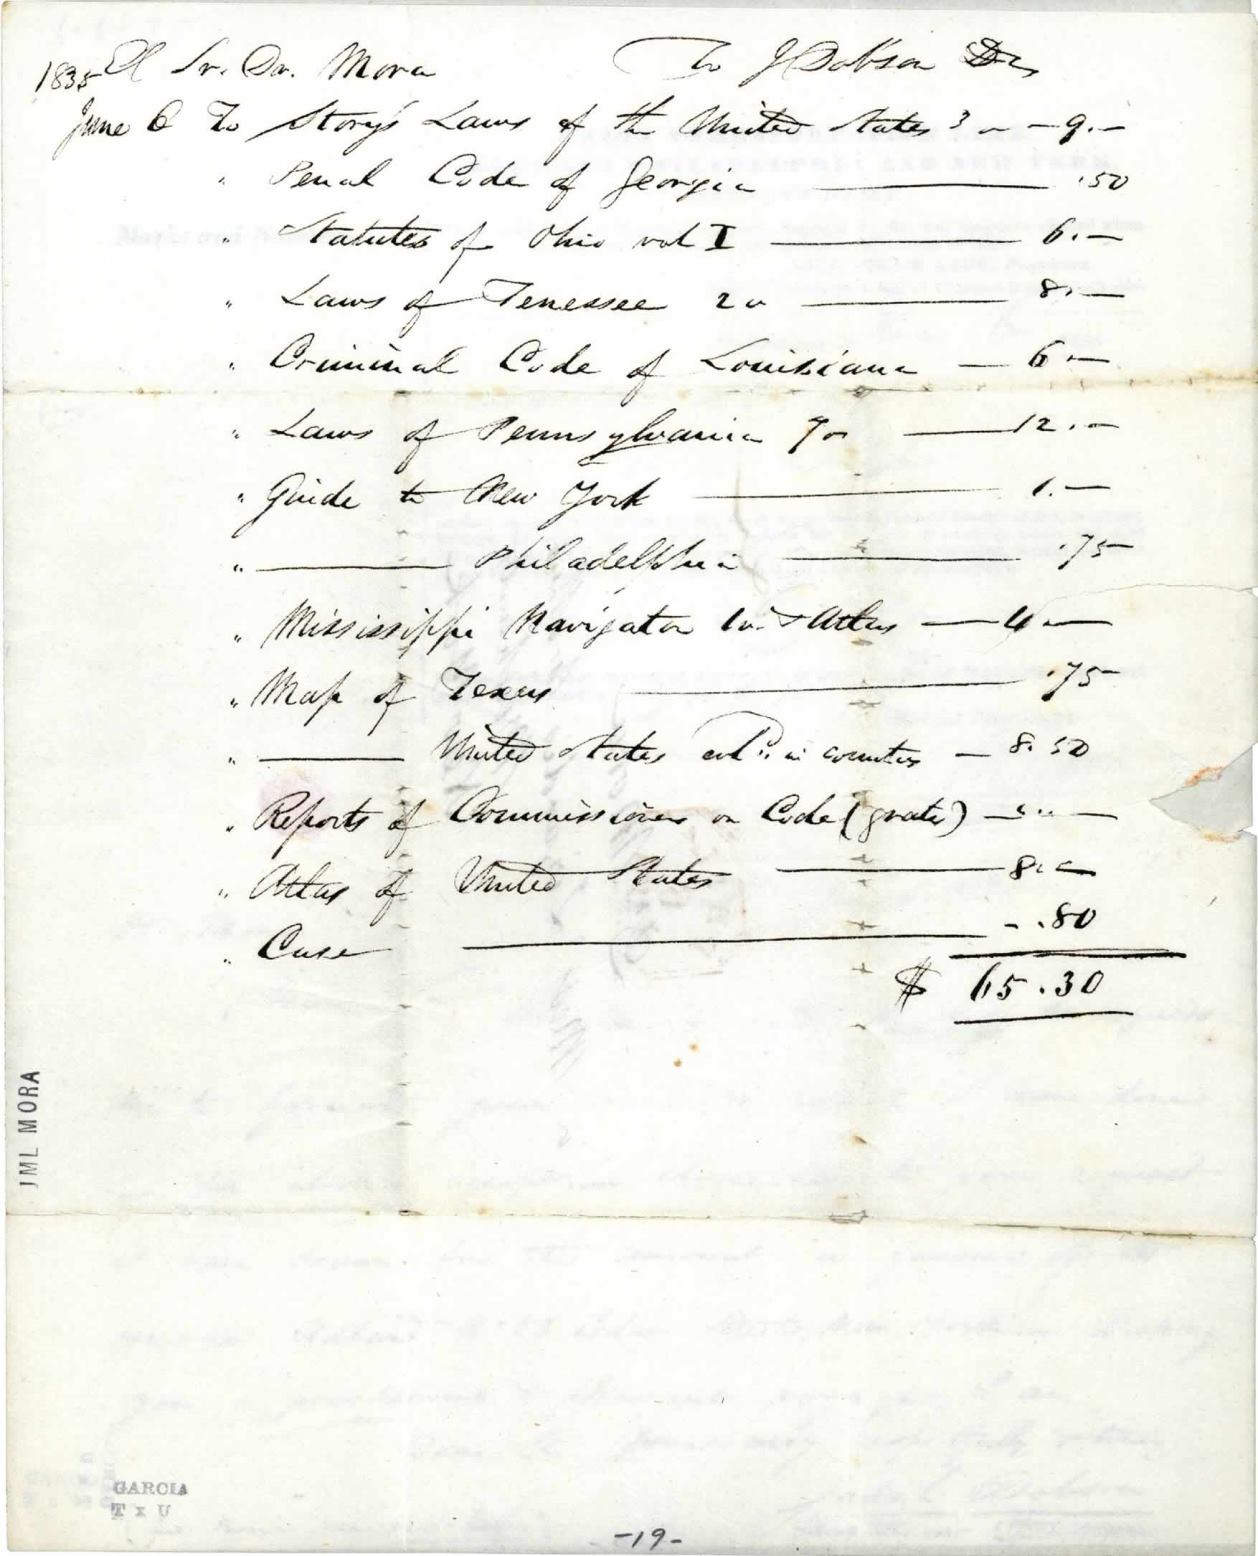 1835 El Sr. Dr. Mora To J Dobson Dr
June 6 To Story's Laws of the United States 3 v — 9.—
" Penal Code of Georgia — .50
" Statutes of Ohio vol I — 6.—
" Laws of Tenessee 2 v — 8.—
" Criminal Code of Louisiana — 6.—
" Laws of Pennsylvania 7 v — 12.—
" Guide to New York — 1.—
" — Philadelphia — .75
" Mississippi Navigator 1 v. & Atlas — 4.—
" Map of Texas — .75
" — United States in counties — 8.50
" Reports of Commissioners on Code (gratis) — " —
" Atlas of United States — 8.—
" Case — .80
$ 65.30
JML MORA
GARCIA
T x U
-19-